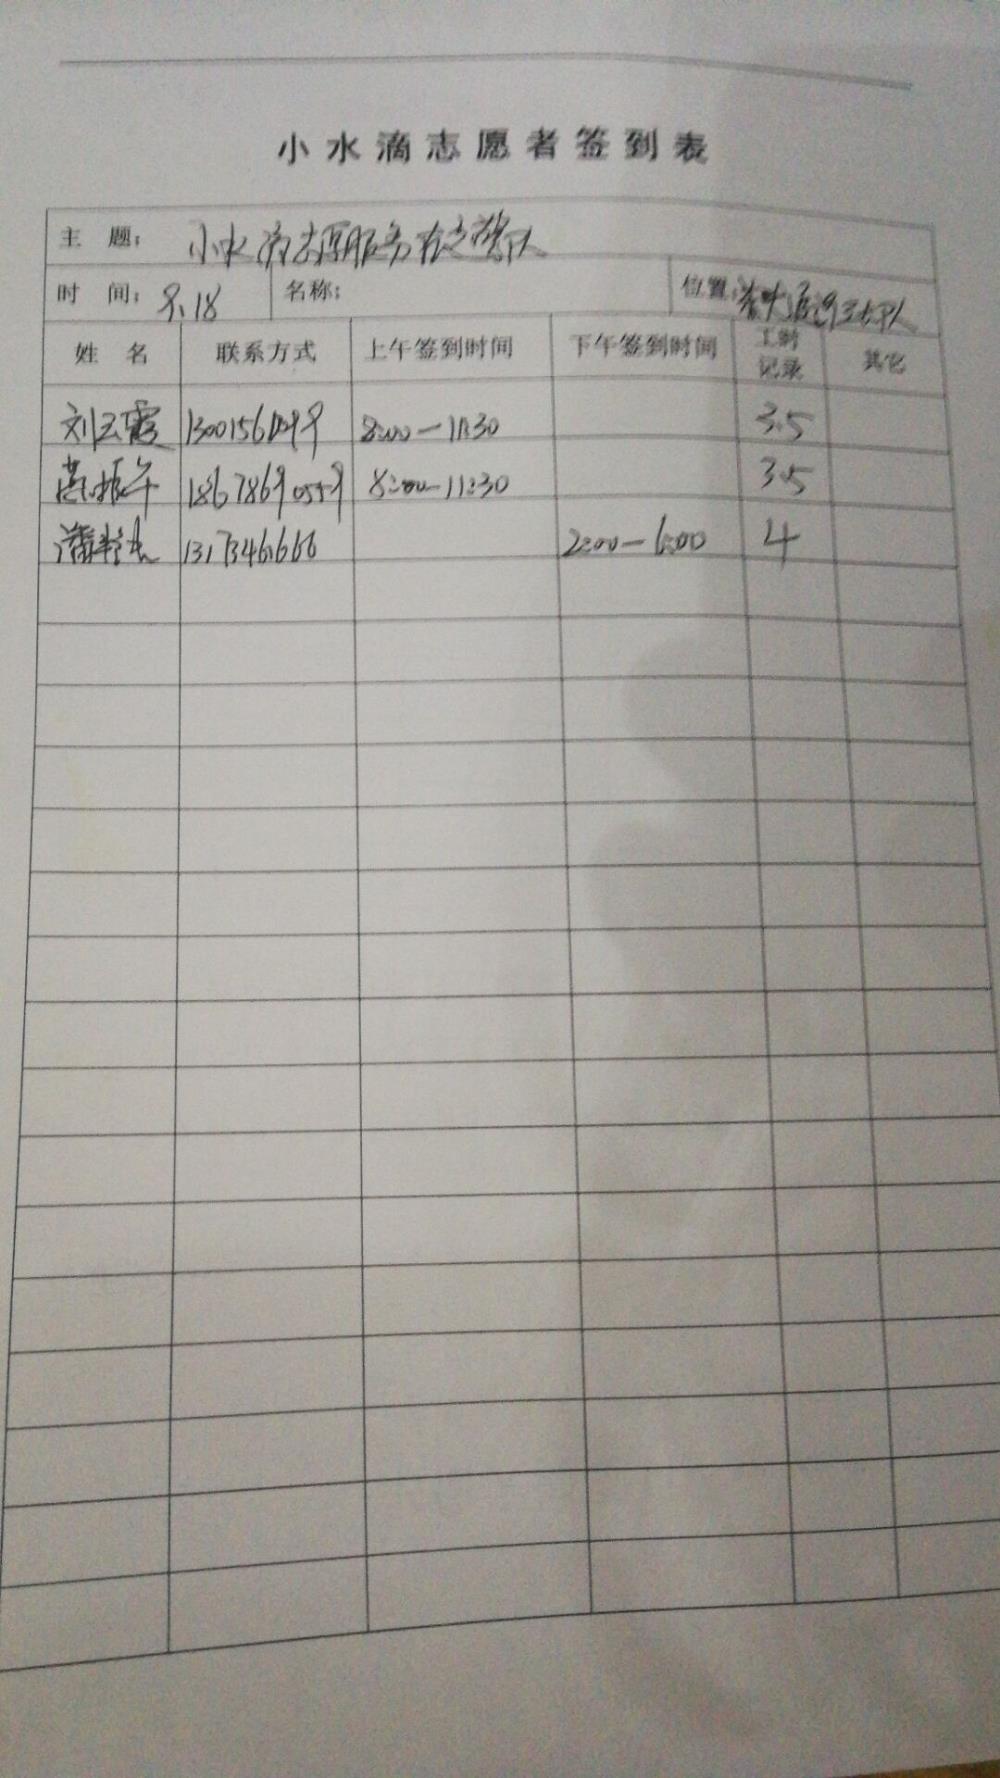 小水滴志愿者签到表
主 题: 小水滴志愿服务队
时 间: 9.18 名称: 位置:
姓 名 联系方式 上午签到时间 下午签到时间 工时记录 其它
刘云霞 8:00-11:30 3.5
振午 18678690559 8:00-11:30 3.5
13173461666 2:00-6:00 4